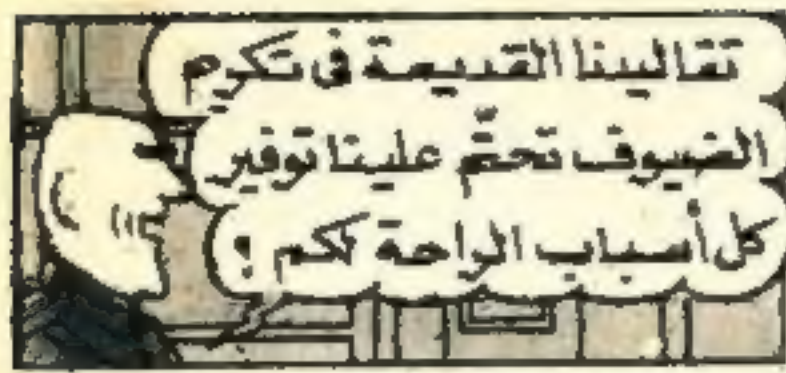 تقاليدنا القديمة فى تكريم
الضيوف تحتّم علينا توفير
كل أسباب الراحة لكم !